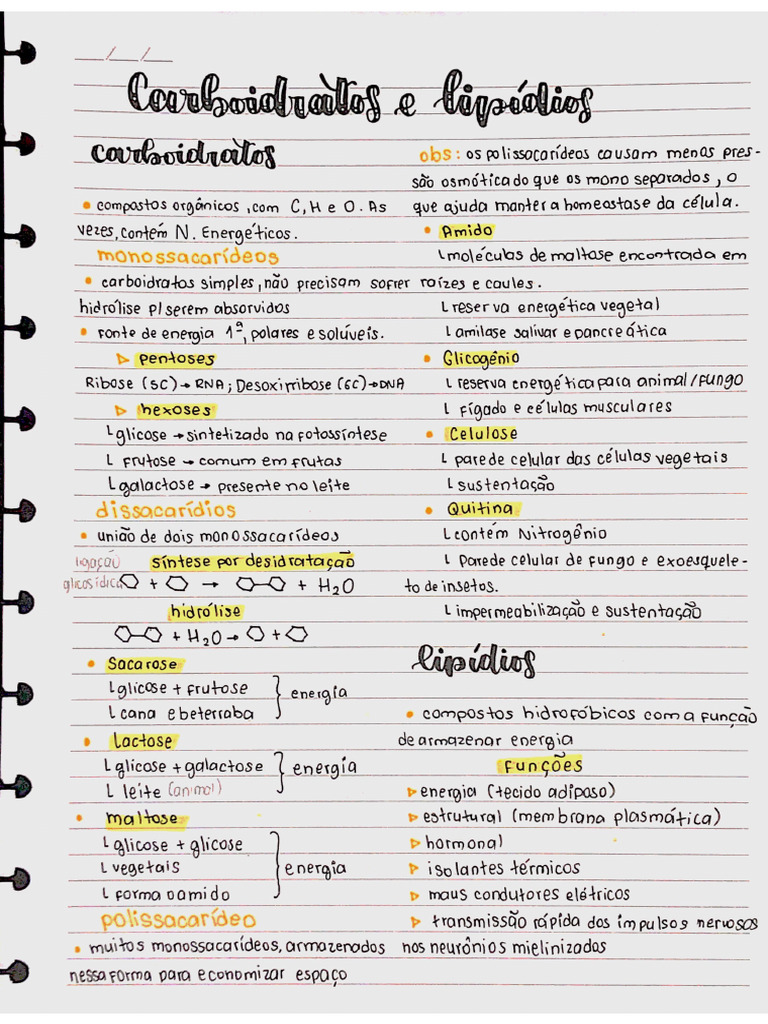 __/__/__
Carboidratos e lipídios
carboidratos
• compostos orgânicos, com C, H e O. As
vezes, contém N. Energéticos.
monossacarídeos
• carboidratos simples, não precisam sofrer
hidrólise p/ serem absorvidos
• fonte de energia 1ª, polares e solúveis.
▷ pentoses
Ribose (5C) → RNA; Desoxirribose (6C) → DNA
▷ hexoses
└ glicose → sintetizado na fotossíntese
└ frutose → comum em frutas
└ galactose → presente no leite
dissacarídios
• união de dois monossacarídeos
ligação glicosídica
síntese por desidratação
+ → + H2O
hidrólise
+ H2O → +
• Sacarose
└ glicose + frutose
└ cana e beterraba
} energia
• Lactose
└ glicose + galactose
└ leite (animal)
} energia
• maltose
└ glicose + glicose
└ vegetais
└ forma o amido
} energia
polissacarídeo
• muitos monossacarídeos, armazenados
nessa forma para economizar espaço
obs: os polissacarídeos causam menas pres-
são osmótica do que os mono separados, o
que ajuda manter a homeostase da célula.
• Amido
└ moléculas de maltose encontrada em
raízes e caules.
└ reserva energética vegetal
└ amilase salivar e pancreática
• Glicogênio
└ reserva energética para animal/fungo
└ fígado e células musculares
• Celulose
└ parede celular das células vegetais
└ sustentação
• Quitina
└ contém Nitrogênio
└ Parede celular de fungo e exoesquele-
to de insetos.
└ impermeabilização e sustentação
lipídios
• compostos hidrofóbicos com a função
de armazenar energia
Funções
▷ energia (tecido adiposo)
▷ estrutural (membrana plasmática)
▷ hormonal
▷ isolantes térmicos
▷ maus condutores elétricos
▷ transmissão rápida dos impulsos nervosos
nos neurônios mielinizados